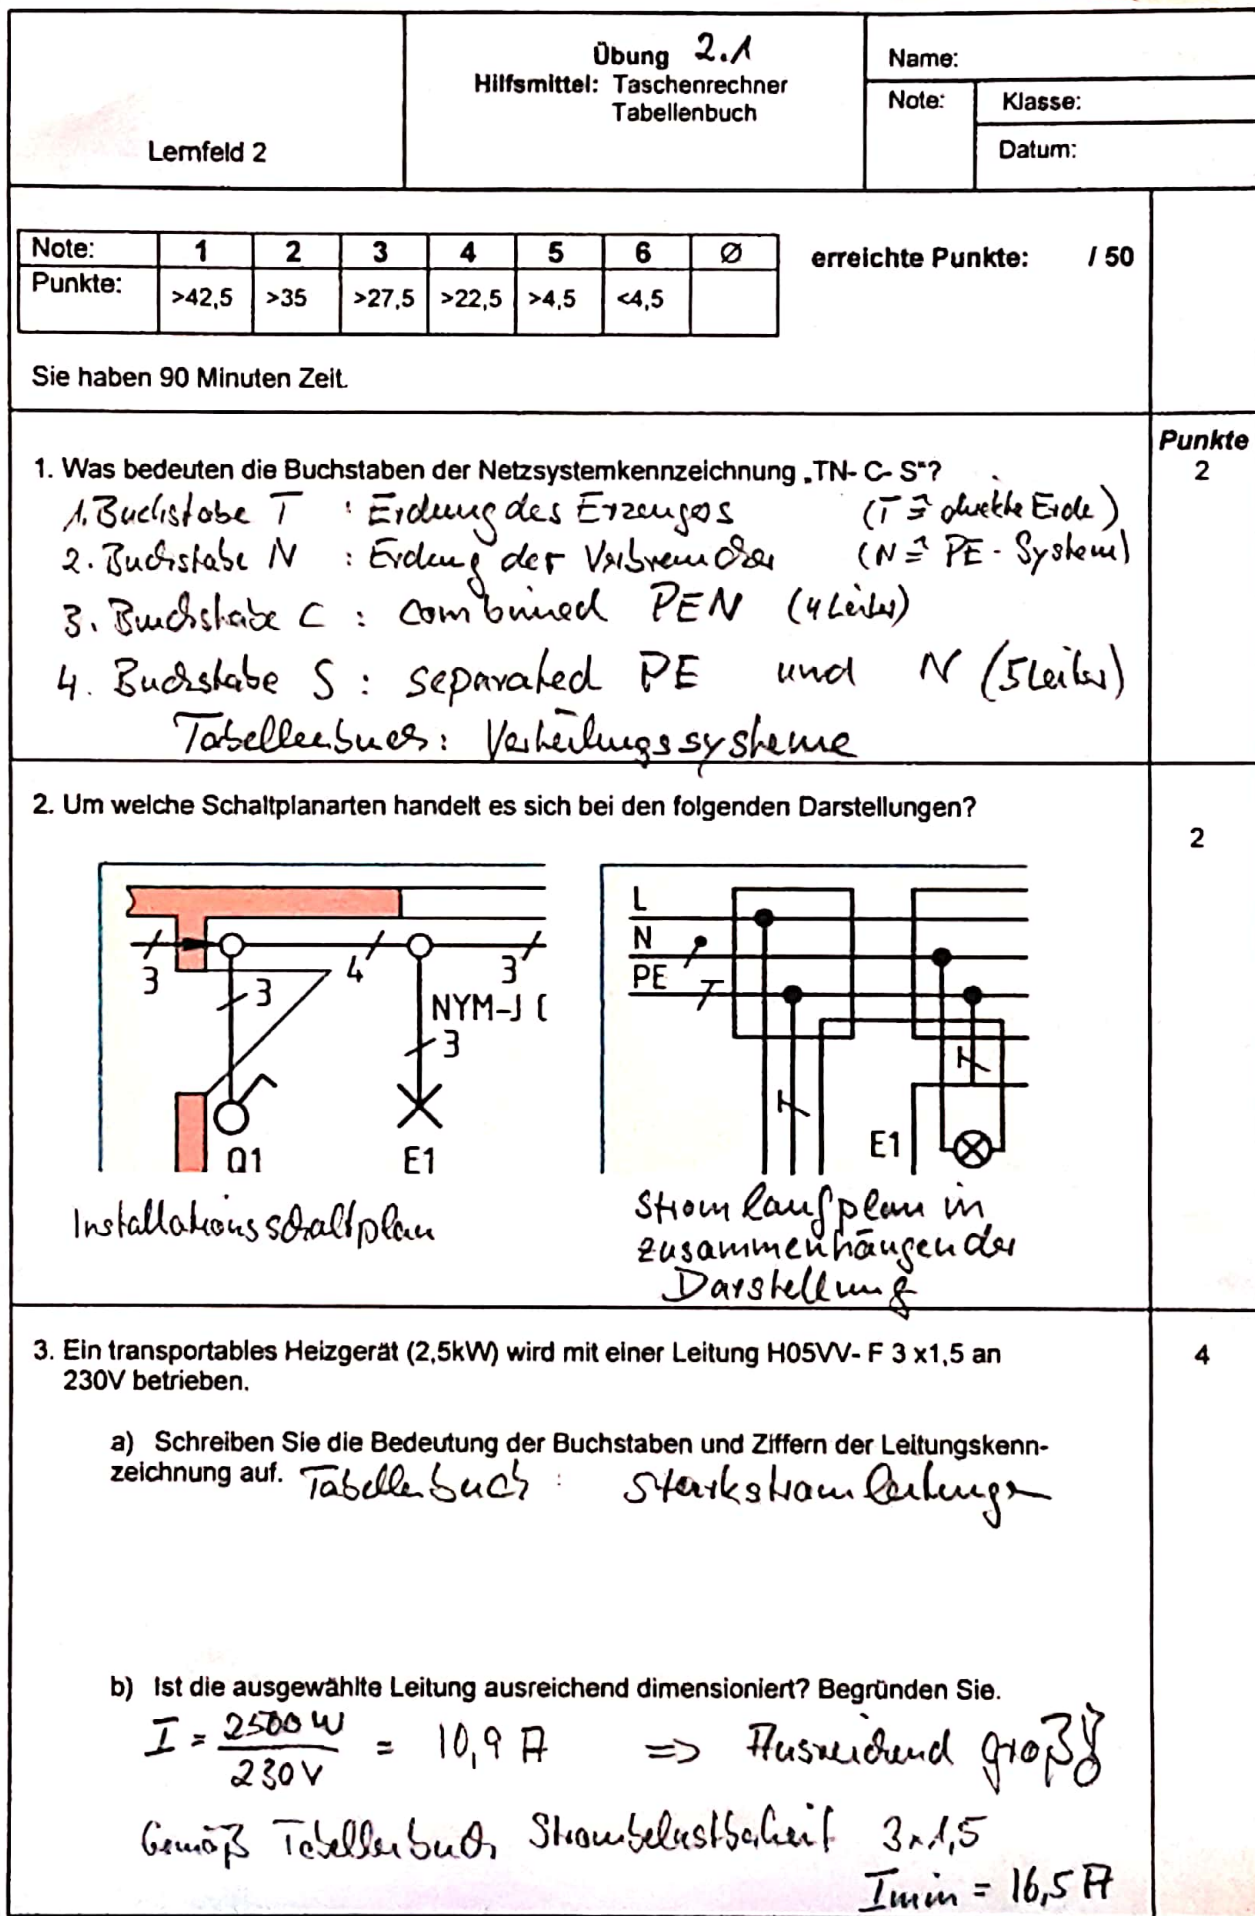 Übung 2.1
Hilfsmittel: Taschenrechner
Tabellenbuch
Lernfeld 2
Name:
Note:
Klasse:
Datum:
Note: 1 2 3 4 5 6 Ø
Punkte: >42,5 >35 >27,5 >22,5 >4,5 <4,5
erreichte Punkte: / 50
Sie haben 90 Minuten Zeit.
Punkte
1. Was bedeuten die Buchstaben der Netzsystemkennzeichnung „TN- C- S"?
2
1. Buchstabe T : Erdung des Erzeugers (T ≙ direkte Erde)
2. Buchstabe N : Erdung der Verbraucher (N ≙ PE - System)
3. Buchstabe C : combined PEN (4 Leiter)
4. Buchstabe S : separated PE und N (5 Leiter)
Tabellenbuch: Verteilungssysteme
2. Um welche Schaltplanarten handelt es sich bei den folgenden Darstellungen?
2
3
3
4
3
NYM-J
3
Q1
E1
L
N
PE
E1
Installationsschaltplan
Stromlaufplan in
zusammenhängender
Darstellung
3. Ein transportables Heizgerät (2,5kW) wird mit einer Leitung H05VV- F 3 x1,5 an
230V betrieben.
4
a) Schreiben Sie die Bedeutung der Buchstaben und Ziffern der Leitungskenn-
zeichnung auf. Tabellenbuch : Starkstromleitungen
b) Ist die ausgewählte Leitung ausreichend dimensioniert? Begründen Sie.
I = 2500 W / 230 V = 10,9 A => Ausreichend groß!
Gemäß Tabellenbuch Strombelastbarkeit 3x1,5
Imin = 16,5 A